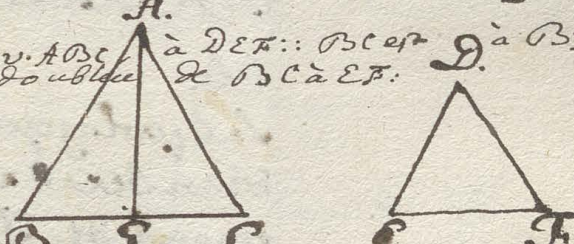 A.
v. ABC à DEF :: BC est
doublée de BC à EF:
à B.
D.
B G C E F